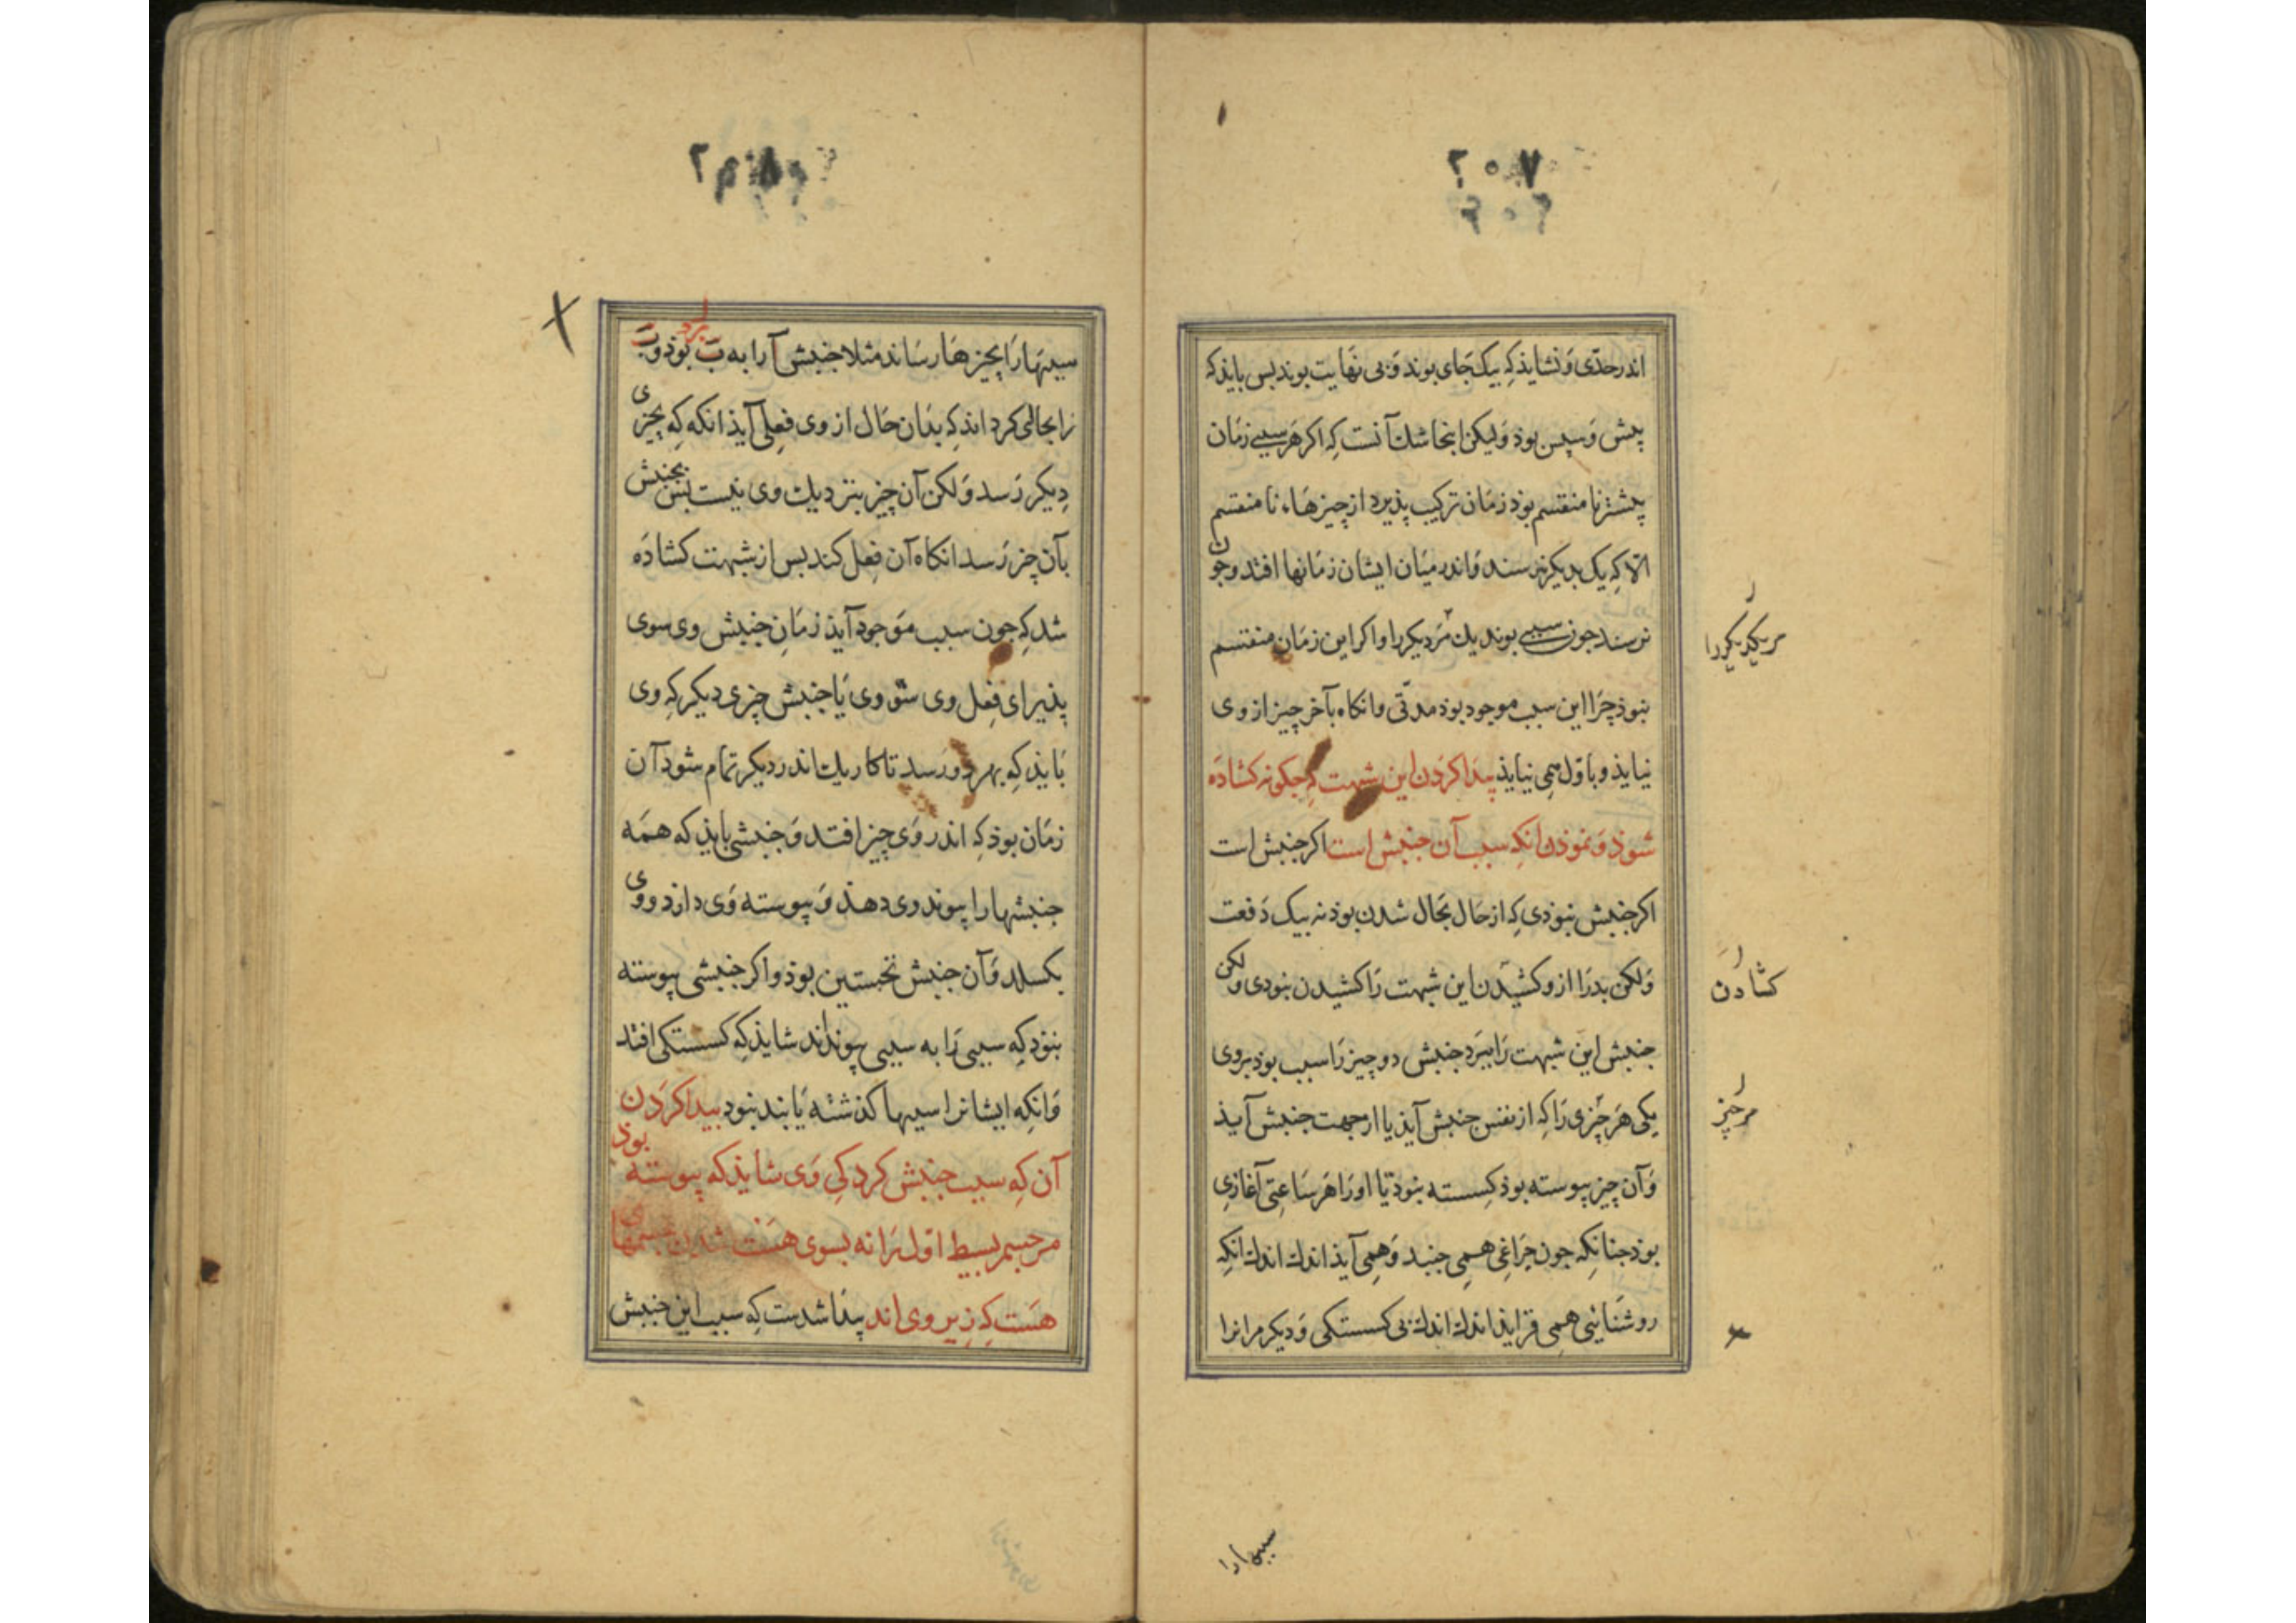 ۲۰۷
اندر حدّی وَ نشایذ کِه بیک جَای بوند وَ بی نهَایت بوند بس بایذ که
پیش وَ سپس بوذ وَ لیکن اینجا شک آنست کِه اکر هَر سببی زمَان
پیشتر نا منقسم بوذ زمَان ترکیب پذیرد از چیزهَاء نا منقسم
الّا کِه یک بدیکر نرسند وَ اندر میَان ایشان زمَانها افتد و جون
نرسند جون سببی بوند یك مَر دیکر را و اکر این زمَان منقسم
نبوذ چرَا این سبب موجود بوذ مدّتی و انکاه بآخر چیز از وی
نیایذ و باوّل همِی نیایذ پیدا کرَدن این شبهت کِه جکونه کشادَه
شوذ وَ نموذن انکه سبب آن جنبش است اکر جنبش است
اکر جنبش نبوذی کِه از حَال بحَال شدن بوذ نه بیک دَفعت
وَ لکن بدرَا از و کشیدَن این شبهت رَا کشیدن نبودی و لکن
جنبش این شبهت رَا ببرَد جنبش دو چیز رَا سبب بوذ بروی
یکی هَر چیزی رَا کِه از نفس جنبش آیذ یا از جهت جنبش آیذ
وَ آن چیز پیوسته بوذ کِسسته نبوذ تا او رَا هَر سَاعتی آغازی
بوذ جنانکِه جون چرَاغِی همِی جنبد وَ همِی آیذ اندك اندك انکِه
روشنَایی همِی فزایذ اندك اندك بی کسستکی وَ دیکر مر انرا
مر یکدیکر را
کشادن
مر چیز
سببها را
سببها رَا بچیزهَا رسَاند مثلا جنبش آ را به بَ بوذ و بَ
رَا بحالی کرداند کِه بدَان حَال از وی فِعلی آیذ انکه که بچیزی
دِیکر رَسد وَ لکن آن چیز بنزدیك وی نیست بس بجنبش
بآن چیز رَسد انکاه آن فعل کند بس از شبهت کشادَه
شد کِه جون سبب مَوجود آیذ زمَانِ جنبش وی سوی
پذیرای فِعل وی سوی وی یَا جنبش چیزی دیکر کِه وی
بَایذ کِه بهر دو رَسد تا کار یك اندر دیکر تمَام شود آن
زمَان بوذ کِه اندر وَی چیز افتد وَ جنبشی بایذ که همَه
جنبشها را پیوند وی دهذ وَ پیوسته وَی دارد و وی
بکسلد وَ آن جنبش نخستین بوذ و اکر جنبشی پیوسته
نبوَد کِه سببی رَا به سببی پیونداند شایذ کِه کسستکی افتد
وَ انکِه ایشانرا سببها کذشته یَابند نبود پیدا کرَدن
آن کِه سبب جنبش کرد کِی وَی شایذ که پیوسته بوذ
مر جسم بسیط اوّل رَا نه بسوی هَست شدن جسمهای
هَست کِه زِیر وی اند پیدَا شدست کِه سبب این جنبش